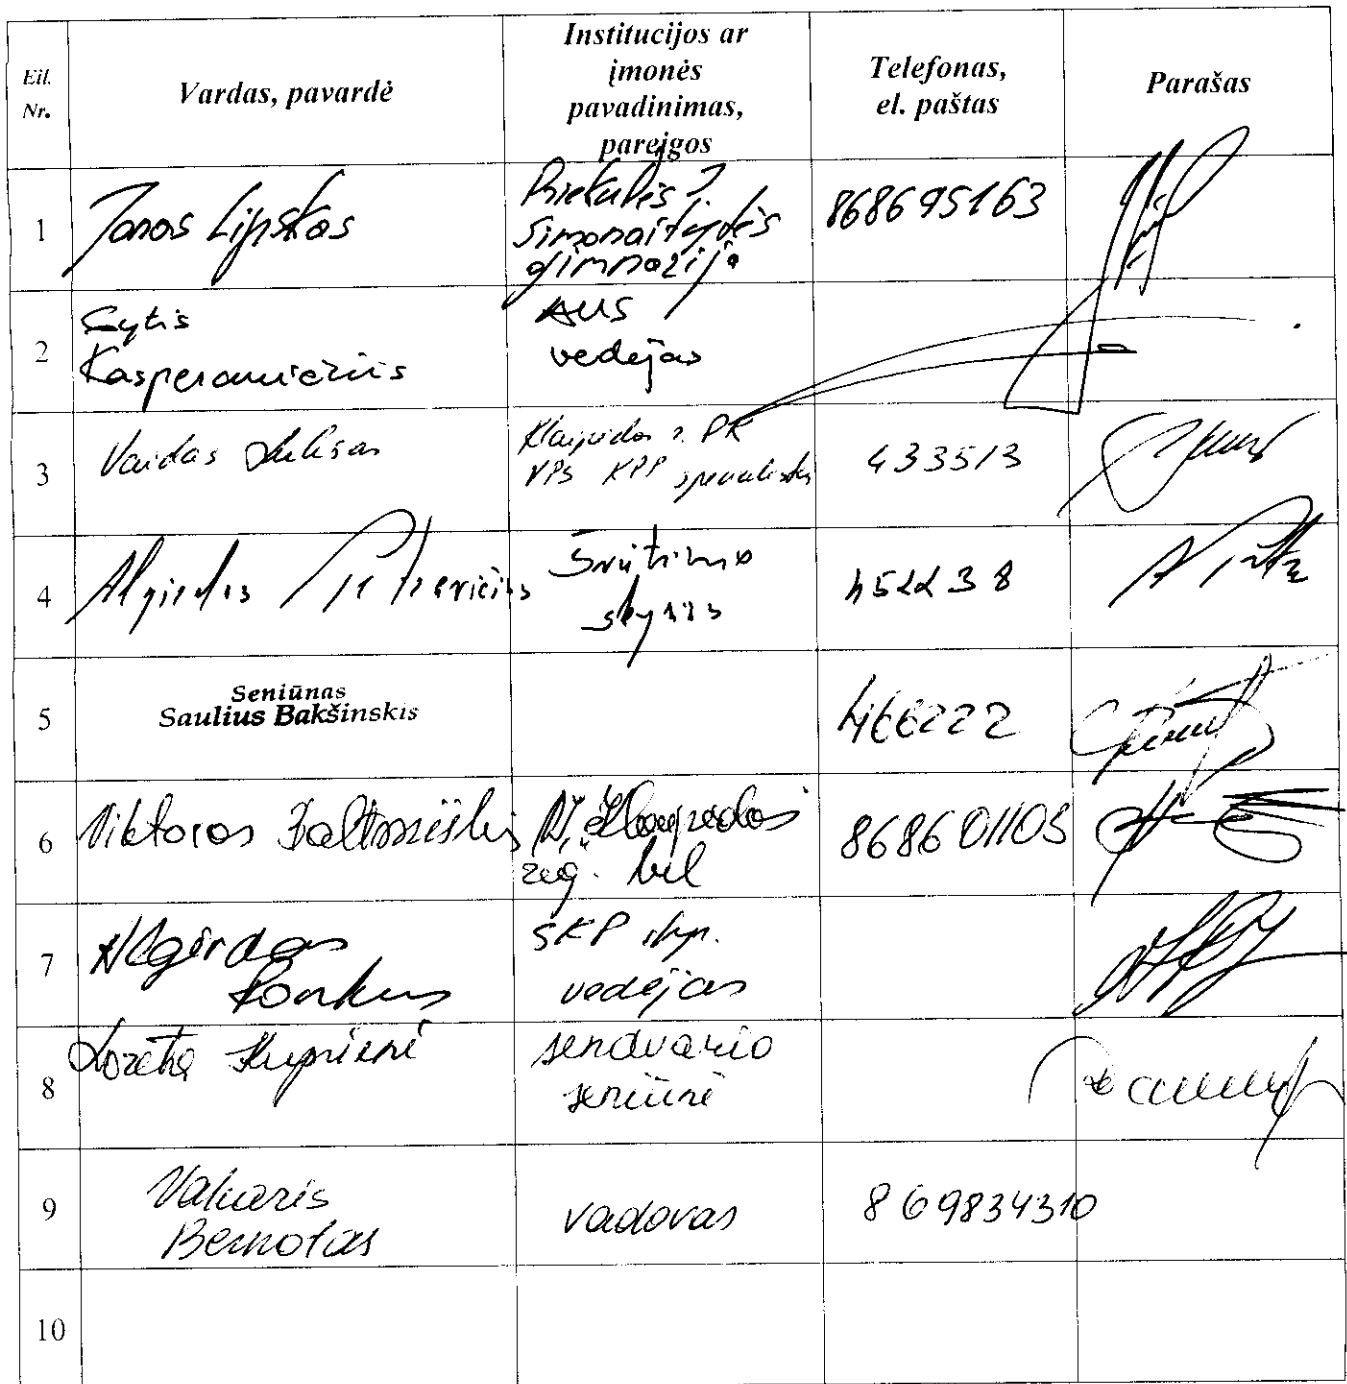 Eil. Nr.
Vardas, pavardė
Institucijos ar
įmonės
pavadinimas,
pareigos
Telefonas,
el. paštas
Parašas
1
Jonas Lipskas
Priekulės I.
Simonaitytės
gimnazija
868695163
2
Gytis
Kasperavičius
AUS
vedėjas
3
Vaidas
Klaipėdos r. PK
VPS KPP specialistas
433513
4
Algirdas Petravičius
Švietimo
skyrius
452238
5
Seniūnas
Saulius Bakšinskis
466222
6
Viktoras
Klaipėdos
reg.
868601105
7
Algirdas
Ronkus
SKP skyr.
vedėjas
8
Loreta Kuprienė
Sendvario
seniūnė
9
Vakaris
Bernotas
vadovas
869834310
10